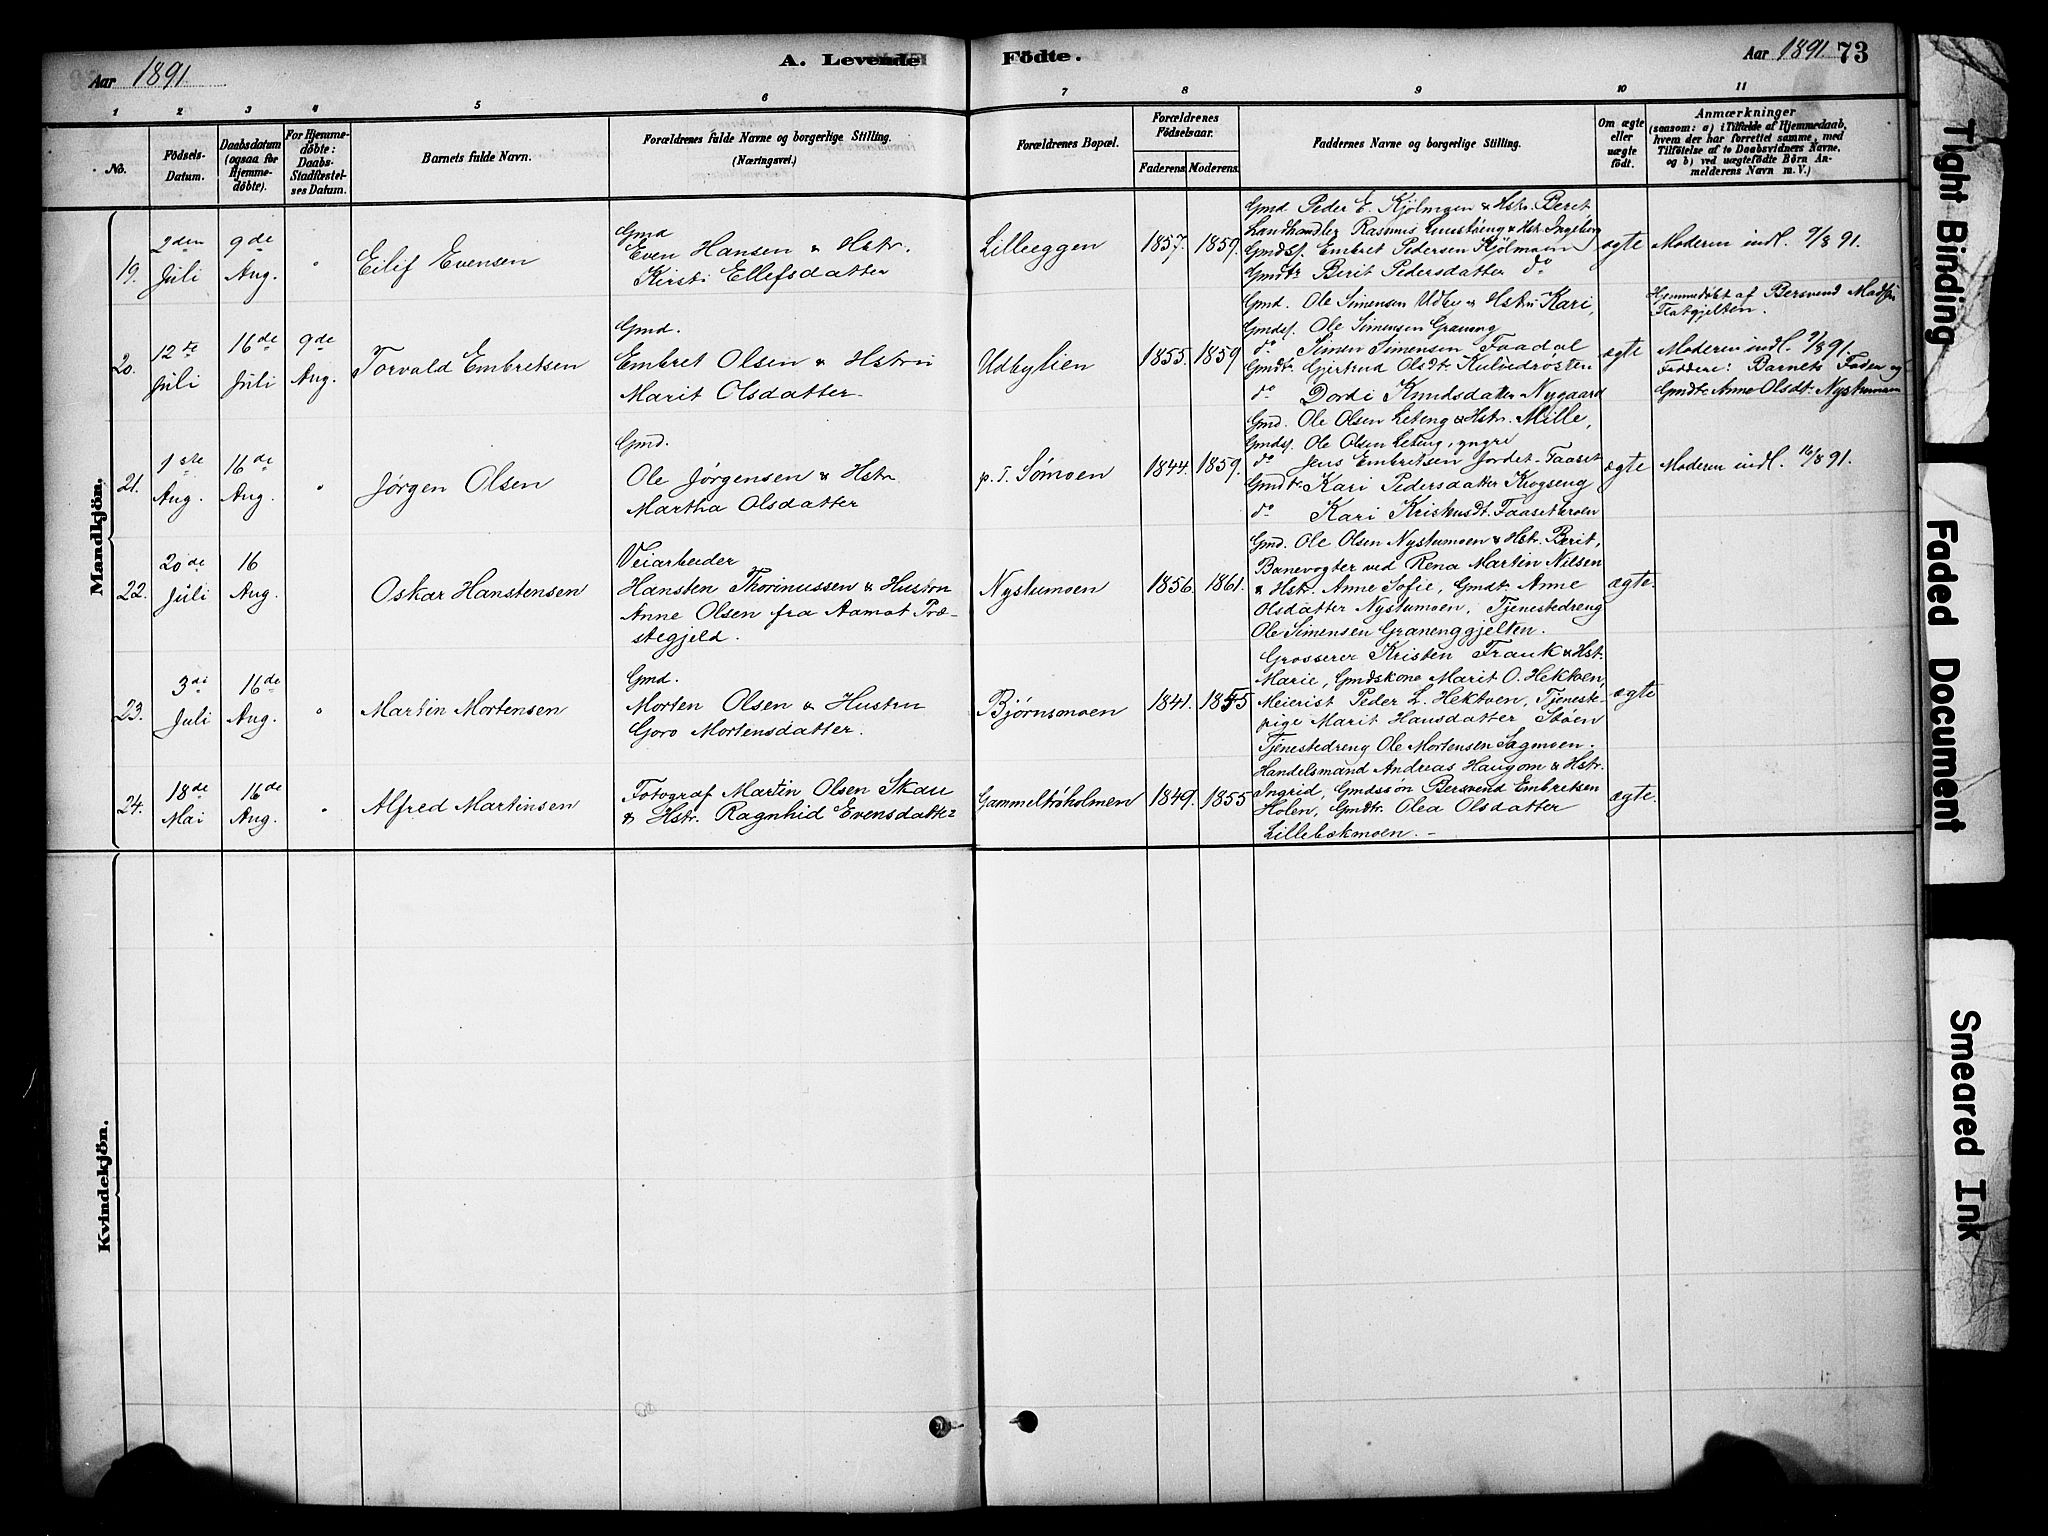 Aar 1891.
A. Levende Födte.
Aar 1891. 73
1 2 3 4 5 6 7 8 9 10 11
No.
Födsels-
Datum.
Daabsdatum
(ogsaa for
Hjemme-
döbte).
For Hjemme-
döbte:
Daabs-
Stadfæstel-
ses Datum.
Barnets fulde Navn.
Forældrenes fulde Navne og borgerlige Stilling.
(Næringsvei.)
Forældrenes Bopæl.
Forældrenes
Födselsaar.
Faderens. Moderens.
Faddernes Navne og borgerlige Stilling.
Om ægte
eller
uægte
födt.
Anmærkninger
(saasom: a) i Tilfælde af Hjemmedaab,
hvem der har forrettet samme, med
Tilföielse af to Daabsvidners Navne,
og b) ved uægtefödte Börn An-
melderens Navn m. V.)
Mandkjön.
19.
2den
Juli
9de
Aug.
"
Eilif Evensen
Gmd
Even Hansen & Hstr.
Kirsti Ellefsdatter
Lilleeggen
1857. 1859.
Gmd Peder E. Kjølmoen & Hstr. Berit
Landhandler Rasmus & Hstr. Ingeborg
Gmdss. Embret Pedersen Kjølmoen
Gmdtr. Berit Pedersdatter do
ægte
Moderen indl. 9/8 91.
20.
12te
Juli
16de
Juli
9de
Aug.
Torvald Embretsen
Gmd.
Embret Olsen & Hstru
Marit Olsdatter.
Udbylien
1855. 1859
Gmd. Ole Simensen Udby & Hstru Kari,
Gmdss. Ole Simensen Graneng
do Simen Simensen Faadal
Gmdtr. Gjertrud Olsdtr. Kulvedrøsten
do Dordi Knudsdatter Nygaard
ægte
Hjemmedøbt af Bersvend Madss.
Flatgjelten.
Moderen indl. 9/8 91.
Faddere: Barnets Fader og
Gmdtr. Anne Olsdtr. Nystumoen
21.
1ste
Aug.
16de
Aug.
"
Jørgen Olsen
Gmd.
Ole Jørgensen & Hstr.
Martha Olsdatter
p. T. Sømoen
1844. 1859.
Gmd. Ole Olsen Leteng & Hstr. Mille,
Gmdss. Ole Olsen Leteng, yngre
do Jens Embretsen Jordet-Faaset
Gmdtr. Kari Pedersdatter Krogseng
do Kari Faasetmoen
ægte
Moderen indl. 16/8 91.
22.
20de
Juli
16
Aug.
Oskar Hanstensen
Veiarbeider
Hansten Thorinussen & Hustru
Anne Olsen fra Aamot Præ-
stegjeld.
Nystumoen
1856. 1861.
Gmd. Ole Olsen Nystumoen & Hstr. Berit,
Banevogter ved Rena Martin Nilsen
& Hstr. Anne Sofie, Gmdtr. Anne
Olsdatter Nystumoen, Tjenestedreng
Ole Simensen Granenggjelten.
ægte.
23.
3di
Juli
16de
Aug.
"
Martin Mortensen
Gmd.
Morten Olsen & Hustru
Goro Mortensdatter.
Bjørnsmoen
1841. 1855
Grosserer Kristen Frank & Hst.
Marie, Gmdskone Marit O. Hektoen,
Meierist Peder L. Hektoen, Tjeneste-
pige Marit Hansdatter Støen
Tjenestedreng Ole Mortensen Sagmoen.
ægte
24.
18de
Mai
16de
Aug.
"
Alfred Martinsen
Fotograf Martin Olsen Skau
& Hstr. Ragnhid Evensdatter
Gammeltrøholmen
1849. 1855
Handelsmand Andreas Haugom & Hstr.
Ingrid, Gmdssøn Bersvend Embretsen
Holen, Gmdtr. Olea Olsdatter
Lillebækmoen. -
ægte.
Kvindekjön.
Tight Binding
Faded Document
Smeared Ink